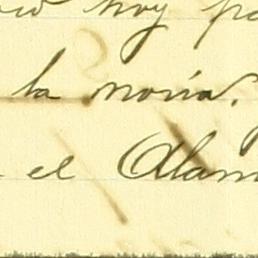 hoy
la noria.
el Alam